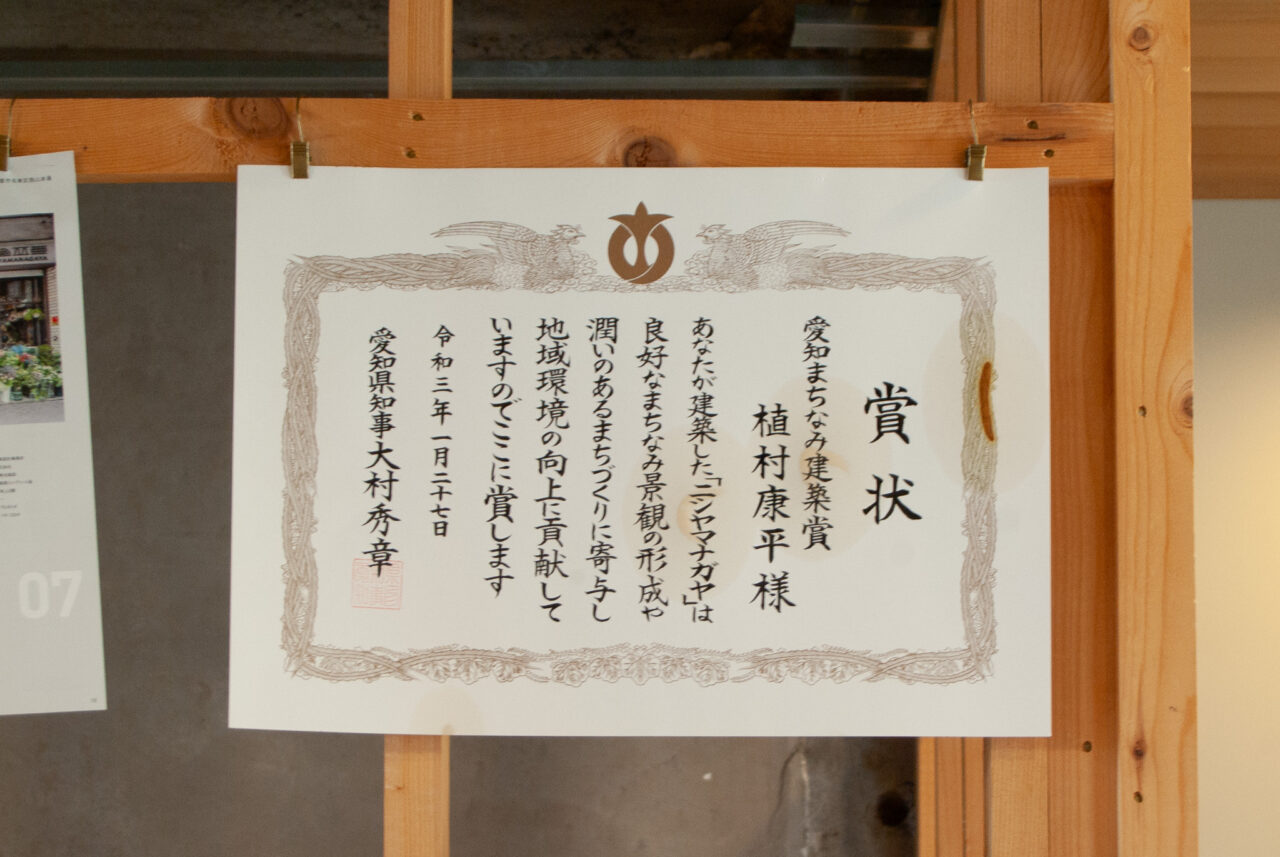 賞状
愛知まちなみ建築賞
植村康平様
あなたが建築した「ニシヤマナガヤ」は
良好なまちなみ景観の形成や
潤いのあるまちづくりに寄与し
地域環境の向上に貢献して
いますのでここに賞します
令和三年一月二十七日
愛知県知事大村秀章
07